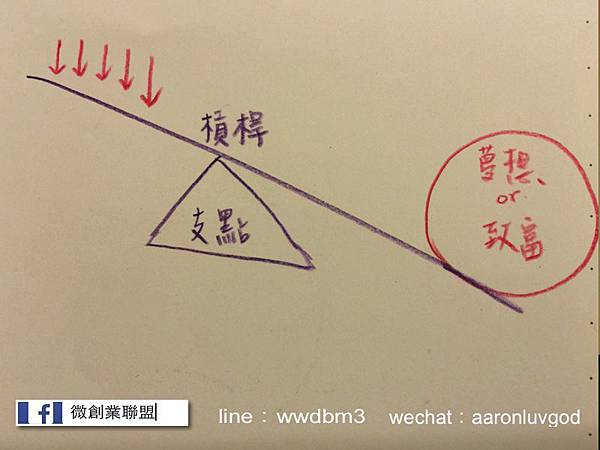 槓桿
支點
夢想、
or
致富
微創業聯盟
line：wwdbm3
wechat：aaronluvgod